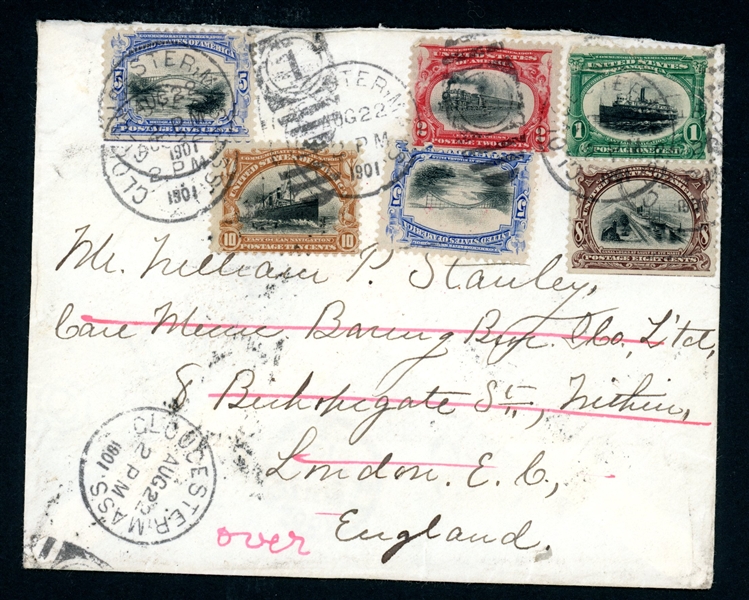 COMMEMORATIVE SERIES 1901
UNITED STATES OF AMERICA
5 5
POSTAGE FIVE CENTS
COMMEMORATIVE SERIES 1901
UNITED STATES OF AMERICA
2 2
POSTAGE TWO CENTS
COMMEMORATIVE SERIES 1901
UNITED STATES
OF AMERICA
1 1
POSTAGE ONE CENT
COMMEMORATIVE SERIES 1901
UNITED STATES OF AMERICA
10 10
FAST OCEAN NAVIGATION
POSTAGE TEN CENTS
UNITED STATES OF AMERICA
5 5
UNITED STATES OF AMERICA
8 8
POSTAGE EIGHT CENTS
GLOUCESTER, MASS.
AUG 22
2 PM
1901
1
GLOUCESTER, MASS.
AUG 22
2 PM
1901
Mr. William P. Stanley,
Care Messrs Baring Bros. & Co., L'td,
8 Bishopsgate St., Within,
London. E. C.,
England.
GLOUCESTER, MASS.
AUG 22
2 PM
1901
over